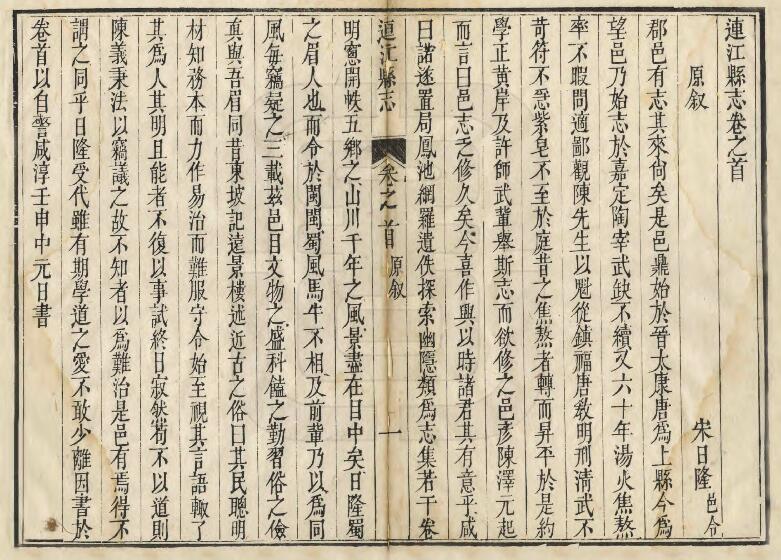 連江縣志卷之首
原叙
宋日隆邑令
郡邑有志其來尚矣是邑鼎始於晉太康唐為上縣今為
望邑乃始志於嘉定陶宰武缺不續又六十年湯火焦熬
率不暇問適鄙觀陳先生以魁從鎮福唐教明刑清武不
苛符不急紫皂不至於庭昔之焦熬者轉而昇平於是約
學正黃岸及許師武董舉斯志而欲修之邑彥陳澤元起
而言曰邑志之修久矣今喜作興以時諸君其有意乎咸
曰諾遂置局鳳池網羅遺佚探索幽隱類為志集若干卷
連江縣志 卷之首 原叙 一
明窻開帙五鄉之山川千年之風景盡在目中矣日隆蜀
之眉人也而令於閩閩蜀風馬牛不相及前軰乃以為同
風每竊疑之三載茲邑目文物之盛科儘之勤習俗之儉
真與吾眉同昔東坡記遠景樓述近古之俗曰其民聰明
材知務本而力作易治而難服守令始至視其言語輙了
其為人其明且能者不復以事試終日寂然苟不以道則
陳義秉法以竊議之故不知者以為難治是邑有焉得不
謂之同乎日隆受代雖有期學道之愛不敢少離因書於
卷首以自警咸淳壬申中元日書